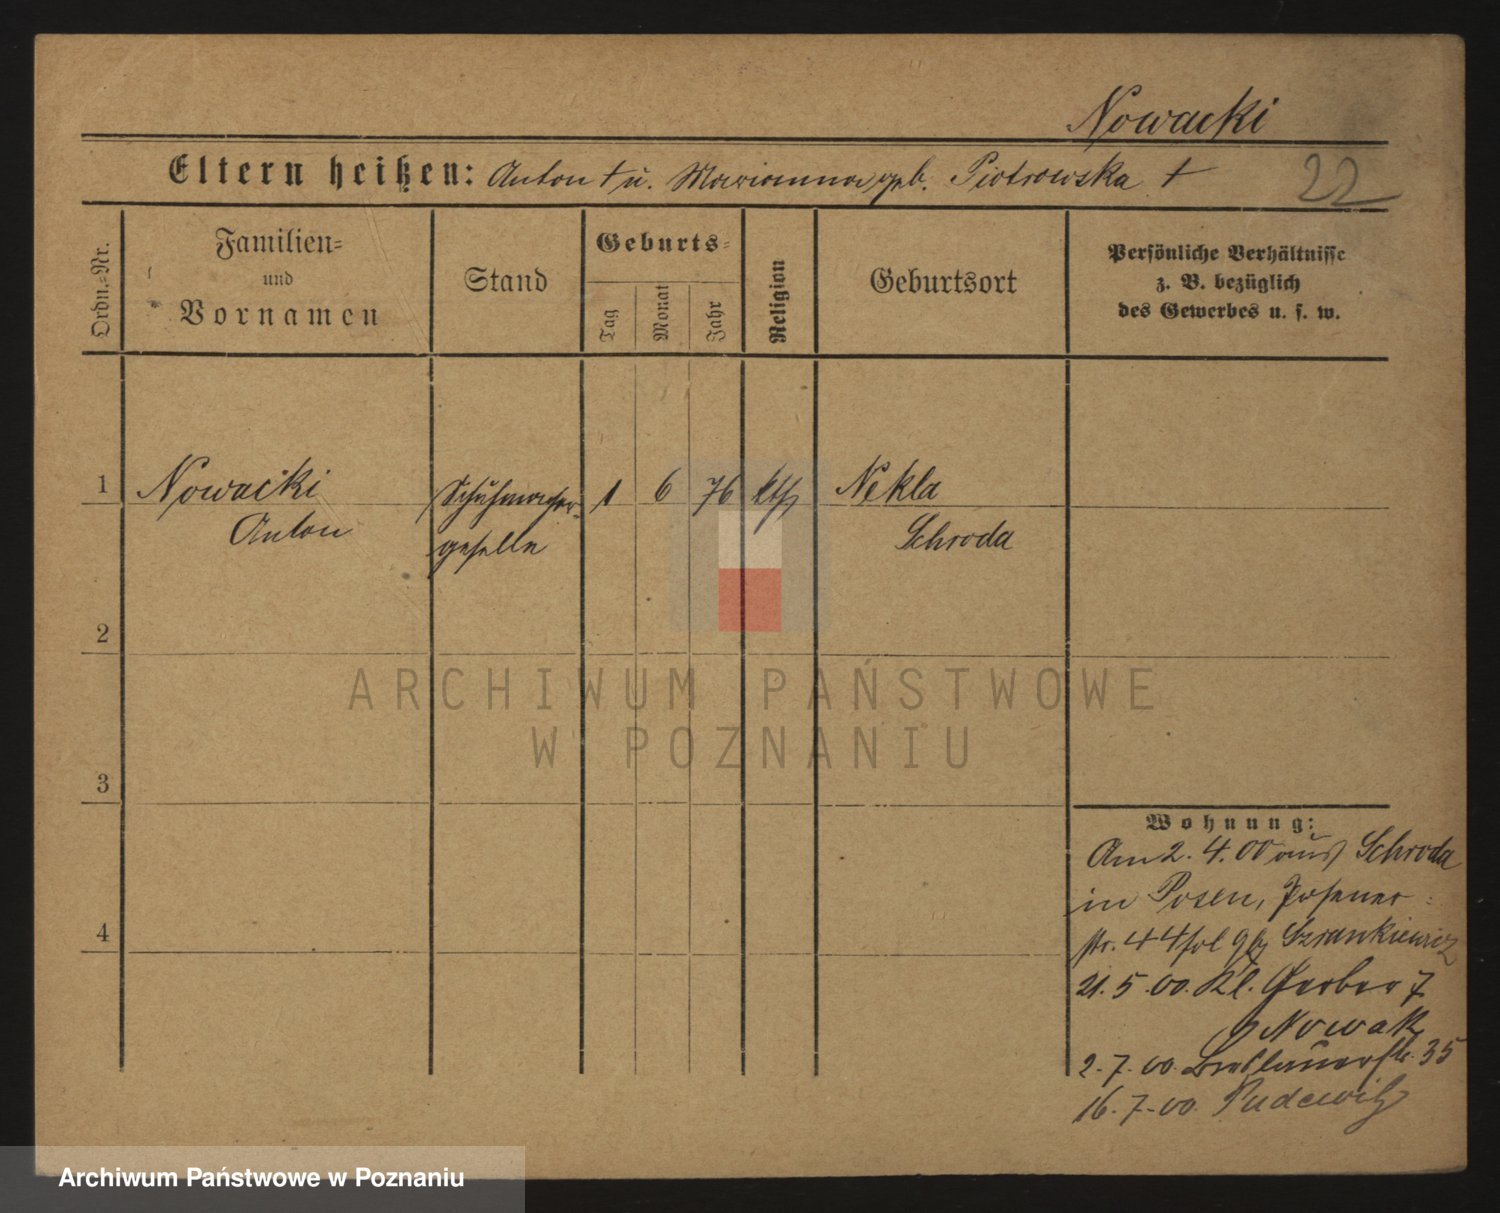 Nowacki
Eltern heißen: Anton † u. Marianna geb. Piotrowska †
22
Ordn.=Nr.
Familien=
und
Vornamen
Stand
Geburts=
Tag
Monat
Jahr
Religion
Geburtsort
Persönliche Verhältnisse
z. B. bezüglich
des Gewerbes u. s. w.
1 Nowacki Schuhmacher- 1 6 76 kth Nekla
Anton geselle Schroda
2
ARCHIWUM PAŃSTWOWE
W POZNANIU
3
Wohnung:
Am 2. 4. 00 aus Schroda
in Posen, Posener
str. 44 Szrankiewicz
21. 5. 00. Kl. Gerber 7
b Nowak
4
2. 7. 00. Breslauerstr. 35
16. 7. 00. Pudewitz
Archiwum Państwowe w Poznaniu